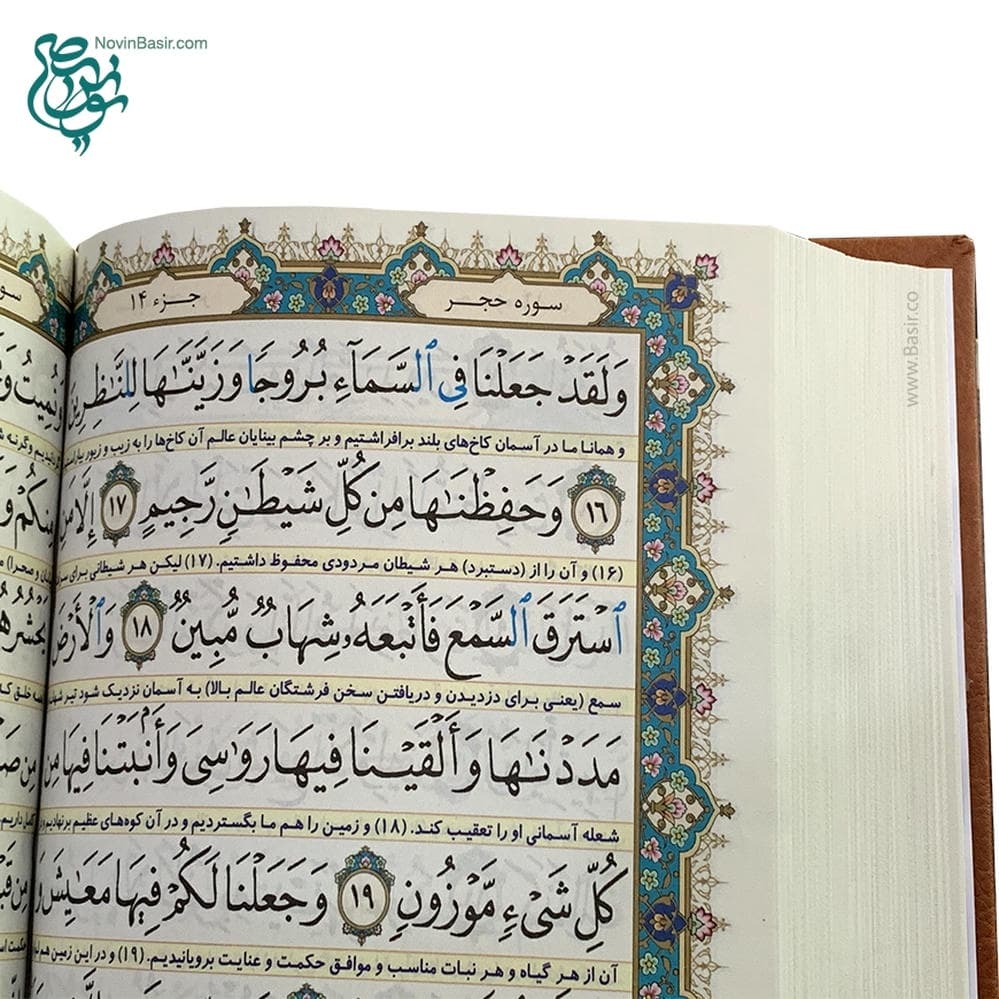 NovinBasir.com
سوره حجر
جزء ۱۴
وَلَقَدْ جَعَلْنَا فِى ٱلسَّمَآءِ بُرُوجًا وَزَيَّنَّٰهَا لِلنَّٰظِرِينَ
و همانا ما در آسمان کاخ‌های بلند برافراشتیم و بر چشم بینایان عالم آن کاخ‌ها را به زیب و زیور
﴿۱۶﴾ وَحَفِظْنَٰهَا مِن كُلِّ شَيْطَٰنٍ رَّجِيمٍ ﴿۱۷﴾ إِلَّا مَنِ
(۱۶) و آن را از (دستبرد) هر شیطان مردودی محفوظ داشتیم. (۱۷) لیکن هر شیطانی برای
ٱسْتَرَقَ ٱلسَّمْعَ فَأَتْبَعَهُۥ شِهَابٌ مُّبِينٌ ﴿۱۸﴾ وَٱلْأَرْضَ
سمع (یعنی برای دزدیدن و دریافتن سخن فرشتگان عالم بالا) به آسمان نزدیک شود تیر
مَدَدْنَٰهَا وَأَلْقَيْنَا فِيهَا رَوَٰسِىَ وَأَنۢبَتْنَا فِيهَا مِن
شعله آسمانی او را تعقیب کند. (۱۸) و زمین را هم ما بگستردیم و در آن کوه‌های عظیم برنهادیم
كُلِّ شَىْءٍ مَّوْزُونٍ ﴿۱۹﴾ وَجَعَلْنَا لَكُمْ فِيهَا مَعَٰيِشَ وَ
آن از هر گیاه و هر نبات مناسب و موافق حکمت و عنایت برویانیدیم. (۱۹) و در این زمین هم
www.Basir.co